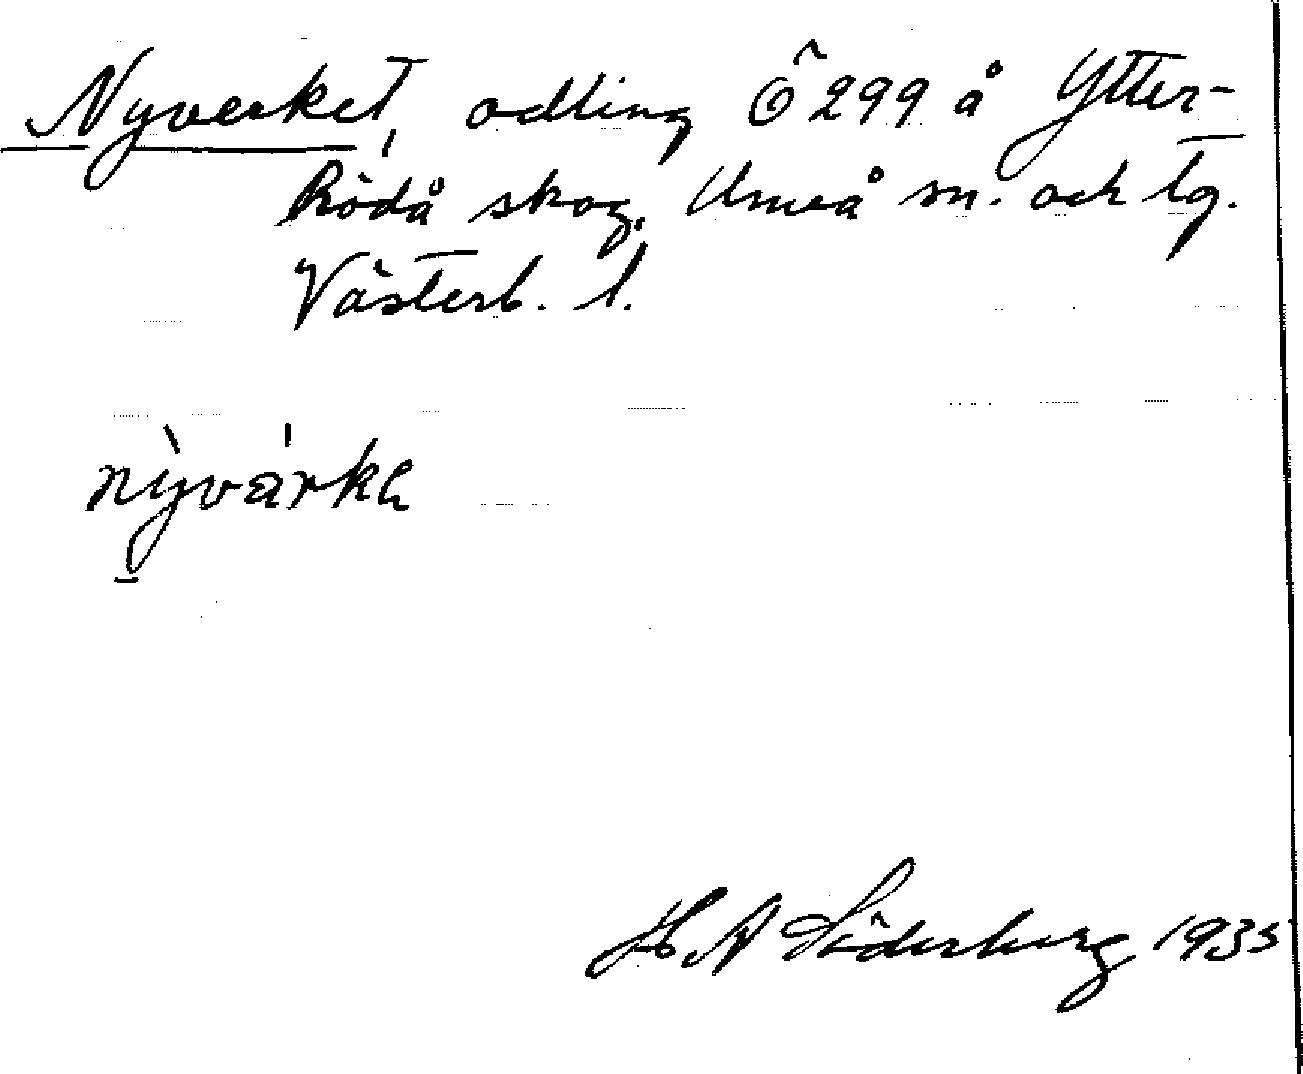 Nyverket, odling Ö 299 å Ytter-
Rödå skog, Umeå sn. och tg.
Västerb. l.
nỳvárka
H A Söderberg 1935